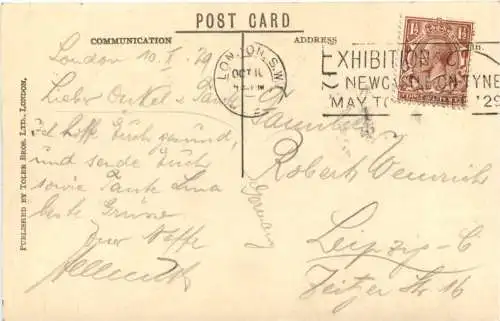 POST CARD
COMMUNICATION
ADDRESS
PUBLISHED BY TOLER BROS. LTD., LONDON.
London 10. X. 29
Lieber Onkel & Tante
ich hoffe Euch gesund,
und sende Euch
sowie Tante Lina
beste Grüsse
Euer Neffe
Hellmuth
LONDON. S.W.1
OCT 10
EXHIBITION
NEWCASTLE-ON-TYNE
MAY TO OCT. '29
Familie
Robert Wennrich
Leipzig-C
Zeitzer Str. 16
Germany